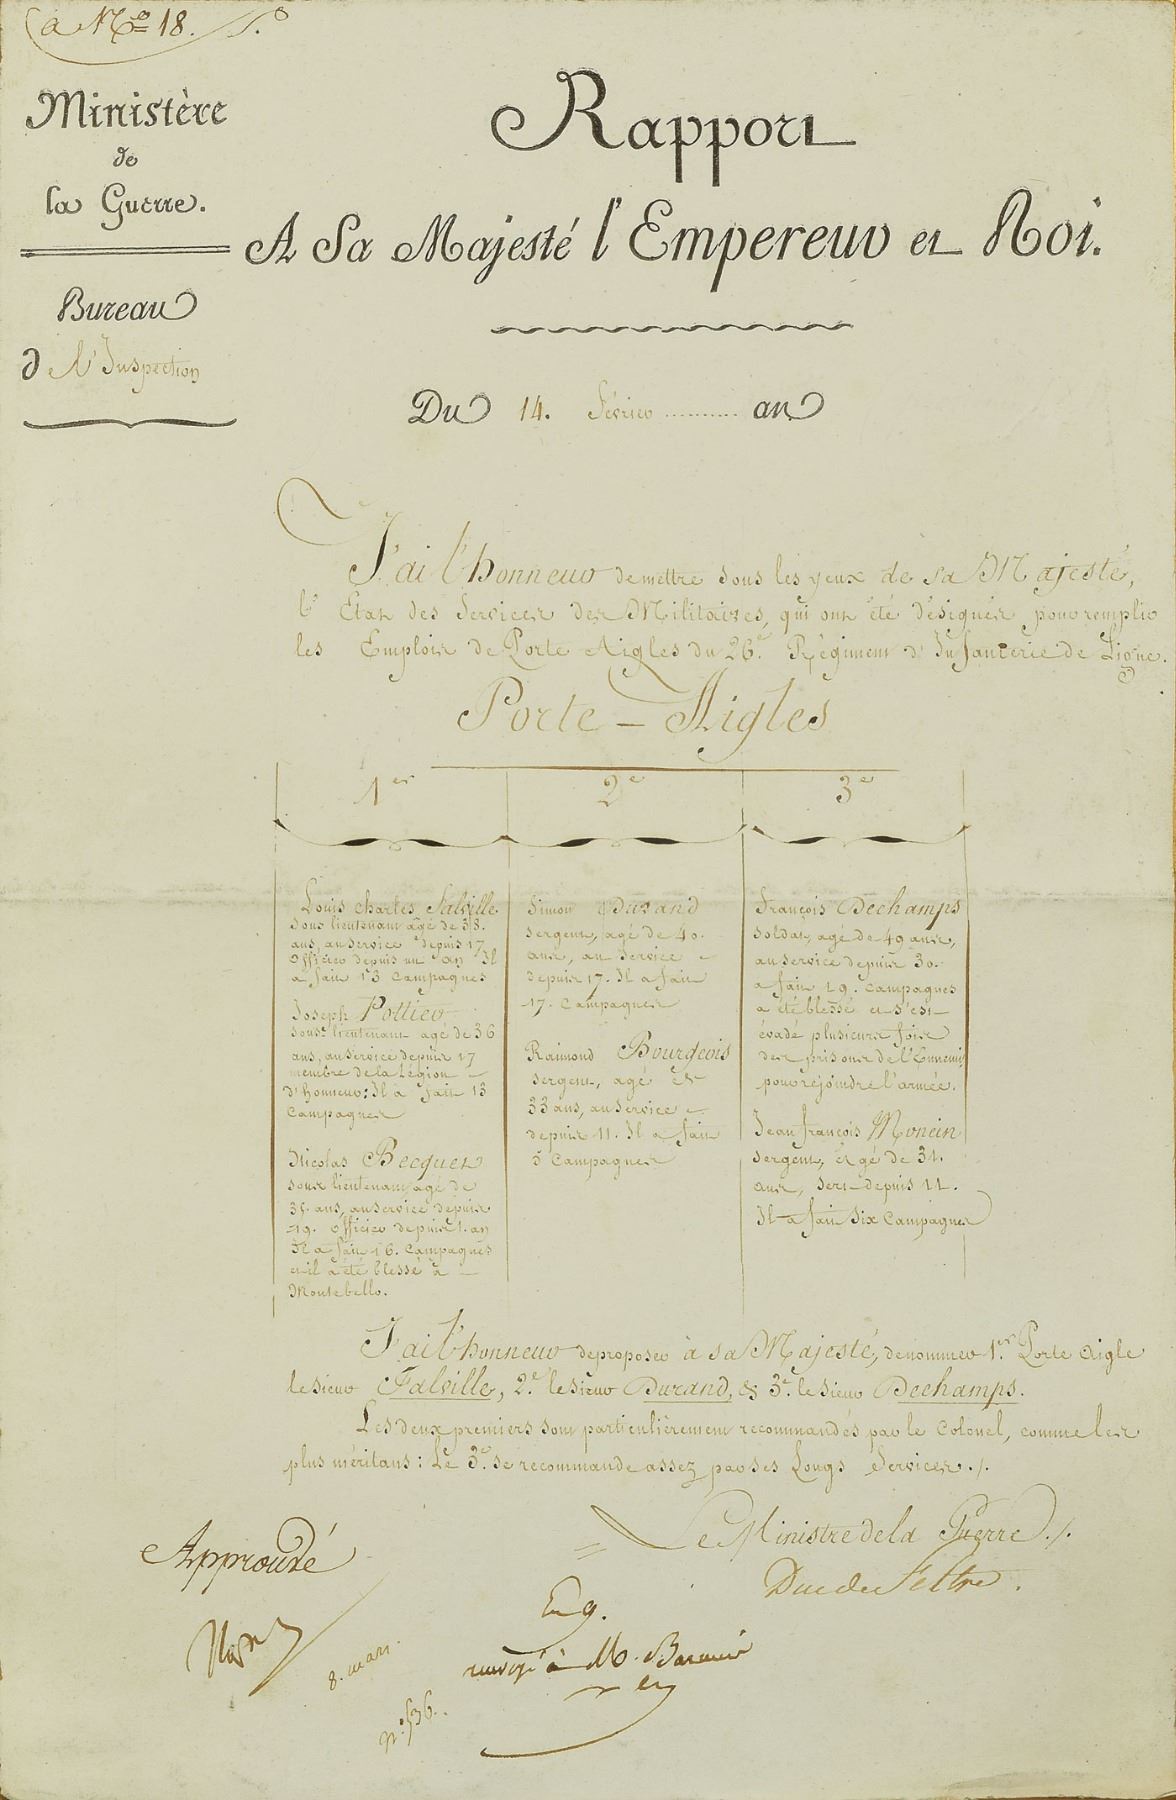 a N.o 18.
Ministère
de
la Guerre.
Bureau
de l'Inspection
Rapport
A Sa Majesté l'Empereur et Roi.
Du 14. février an
J'ai l'honneur de mettre sous les yeux de sa Majesté,
l'Etat des Services des Militaires, qui ont été désignés pour remplir
les Emplois de Porte Aigles du 26.e Régiment d'Infanterie de Ligne.
Porte-Aigles
1er
Louis Charles Salville
sous lieutenant agé de 38.
ans, au service depuis 17
officier depuis un an Il
a fait 13 Campagnes
Joseph Pottier
sous lieutenant agé de 36
ans, au service depuis 17
membre de la Légion
d'honneur; Il a fait 13
Campagnes
Nicolas Becquet
sous lieutenant agé de
35. ans, au service depuis
19. officier depuis 1. an
Il a fait 16. Campagnes
et il a été blessé à
Montebello.
2e
Simon Durand
sergent, agé de 40.
ans, au service
depuis 17. Il a fait
17. Campagnes
Raimond Bourgeois
sergent, agé de
33 ans, au service
depuis 11. Il a fait
5 Campagnes
3e
François Dechamps
soldat, agé de 49 ans,
au service depuis 30.
a fait 19. Campagnes
a été blessé et s'est
évadé plusieurs fois
des prisons de l'Ennemi
pour rejoindre l'armée.
Jean françois Moncin
sergent, agé de 31.
ans, sert depuis 11.
Il a fait six Campagnes
J'ai l'honneur de proposer à sa Majesté, de nommer 1.er Porte aigle
le sieur Falville, 2.e le sieur Durand, & 3.e le sieur Dechamps.
Les deux premiers sont particulièrement recommandés par le Colonel, comme les
plus méritans: Le 3.e se recommande assez par ses Longs Services./.
Le Ministre de la Guerre./.
Duc de Feltre.
Approuvé
8. mars.
n.o 536.
Eng.
renvoyé à M.